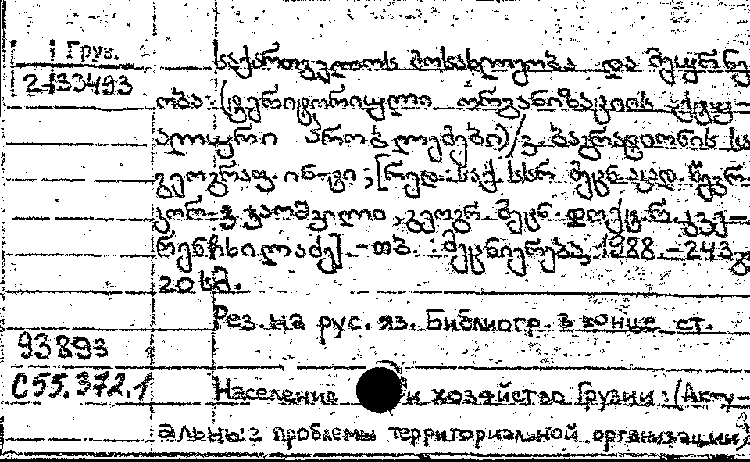 Груз.
2-33493
საქართველოს მოსახლეობა და მეურნე
ობა: (ტერიტორიული ორგანიზაციის აქტუ-
ალური პრობლემები)/ვ. ბაგრატიონის სა
გეოგრაფ. ინ-ტი ; [რედ.: საქ. სსრ მეცნ. აკად. წევრ-
კორ. ვ. ჯაოშვილი, გეოგრ. მეცნ. დოქტ. რ. კვე-
რენჩხილაძე]. - თბ. : მეცნიერება, 1988. - 243 გ
20 სმ.
Рез. на рус. яз. Библиогр. в конце ст.
93893
С55.372.1
Население и хозяйство Грузии : (Акту-
альные проблемы территориальной организации)